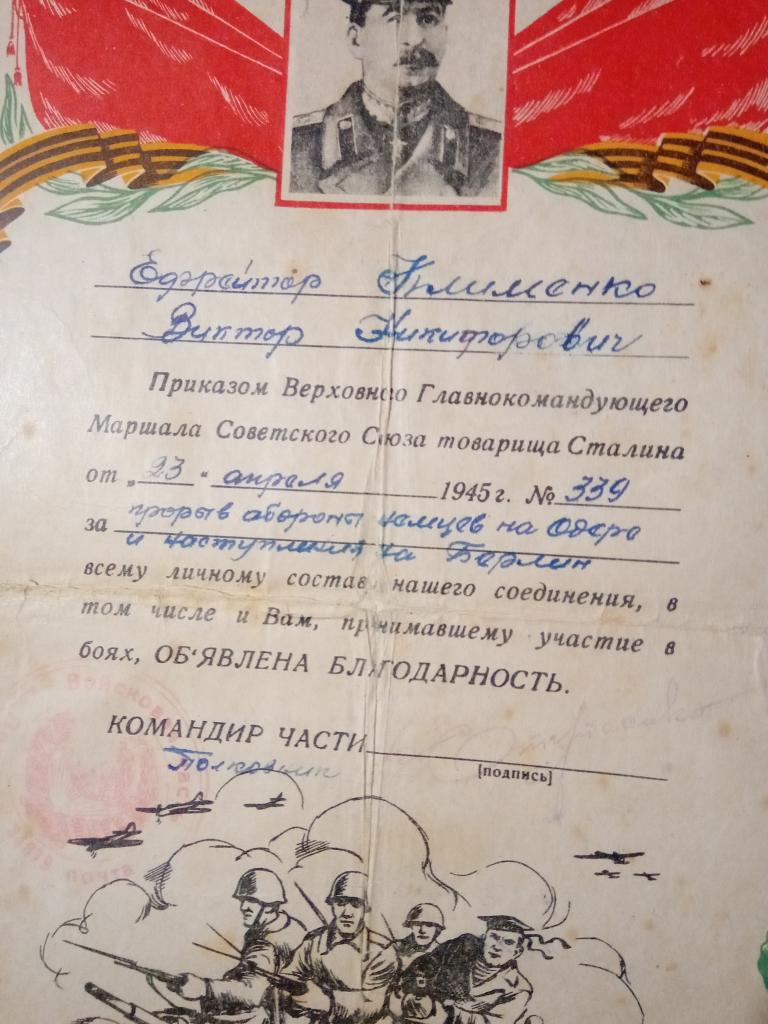 Ефрейтор Клименко
Виктор Никифорович
Приказом Верховного Главнокомандующего
Маршала Советского Союза товарища Сталина
от „23“ апреля 1945 г. № 339
за прорыв обороны немцев на Одере
и наступления на Берлин
всему личному составу нашего соединения, в
том числе и Вам, принимавшему участие в
боях, ОБ'ЯВЛЕНА БЛАГОДАРНОСТЬ.
КОМАНДИР ЧАСТИ
Полковник
[подпись]
Войсковая
почта